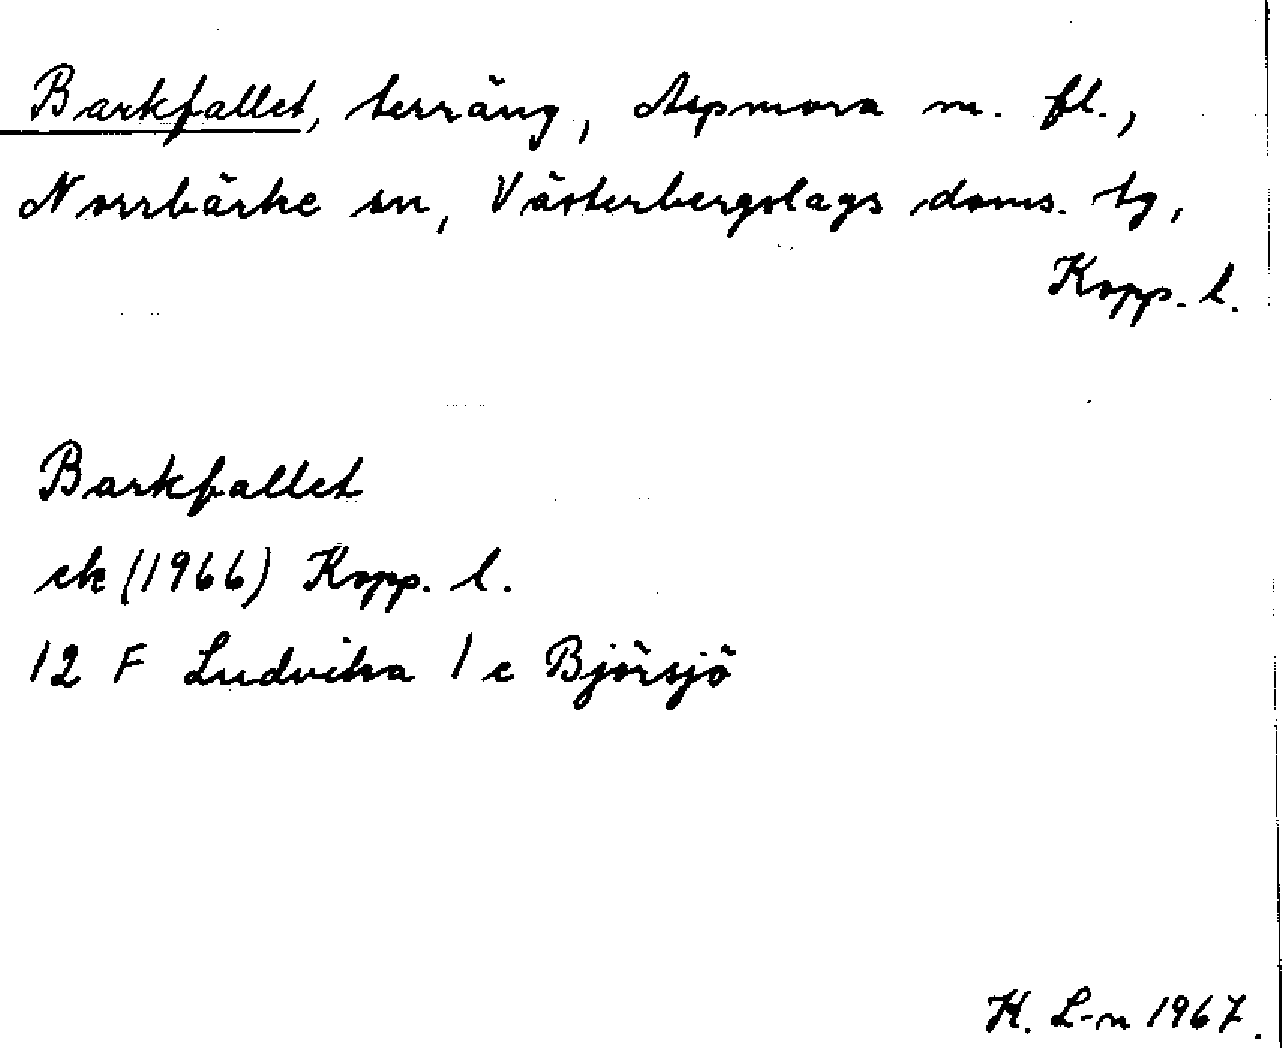 Barkfallet, terräng, Aspmora m. fl.,
Norrbärke sn, Västerbergslags doms. tg,
Kopp. l.
Barkfallet
ek (1966) Kopp. l.
12 F Ludvika 1 c Björsjö
H. L-n 1967.